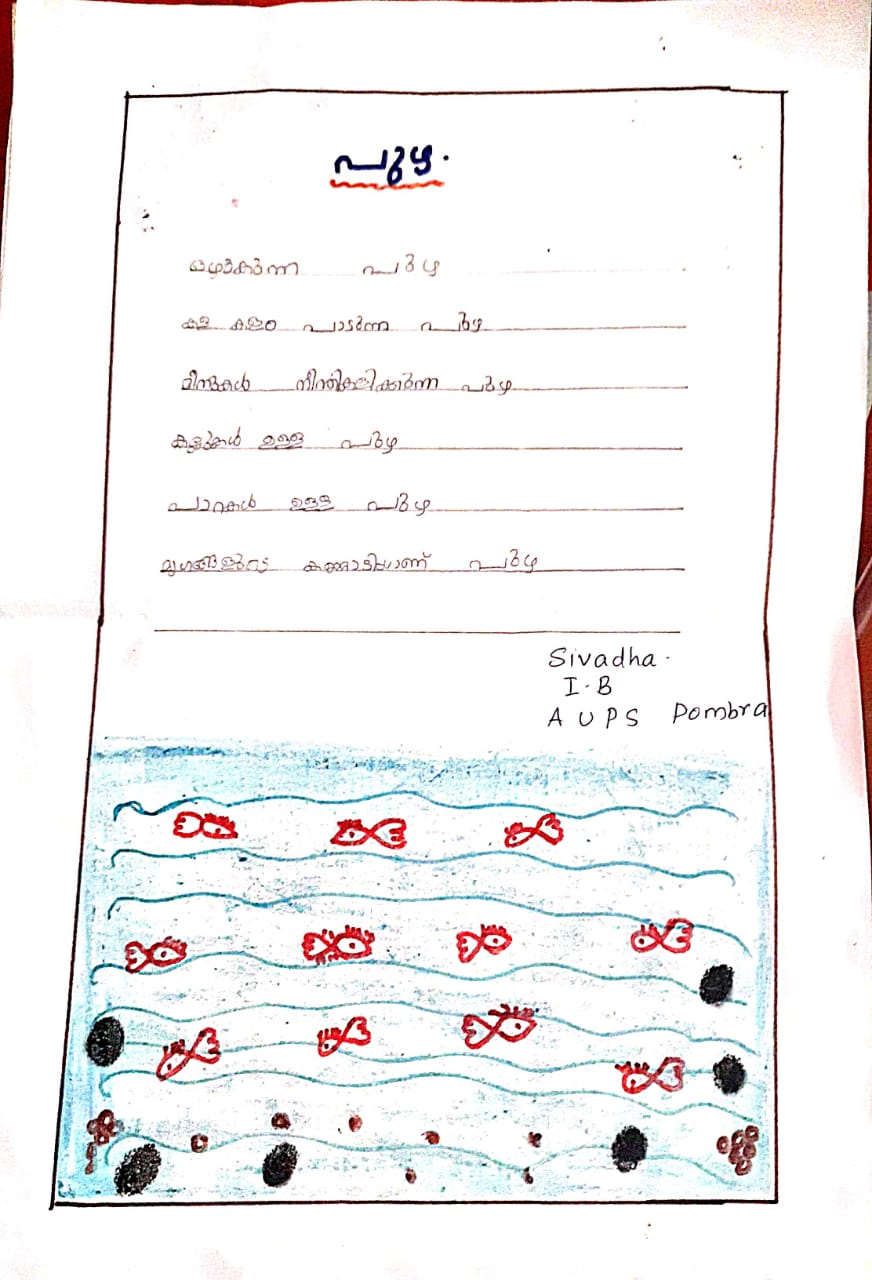 പുഴ.
ഒഴുകുന്ന പുഴ
കള കളം പാടുന്ന പുഴ
മീനുകൾ നീന്തികളിക്കുന്ന പുഴ
കല്ലുകൾ ഉള്ള പുഴ
പാറകൾ ഉള്ള പുഴ
മൃഗങ്ങളുടെ കണ്ണാടിയാണ് പുഴ
Sivadha.
I.B
A U P S Pombra